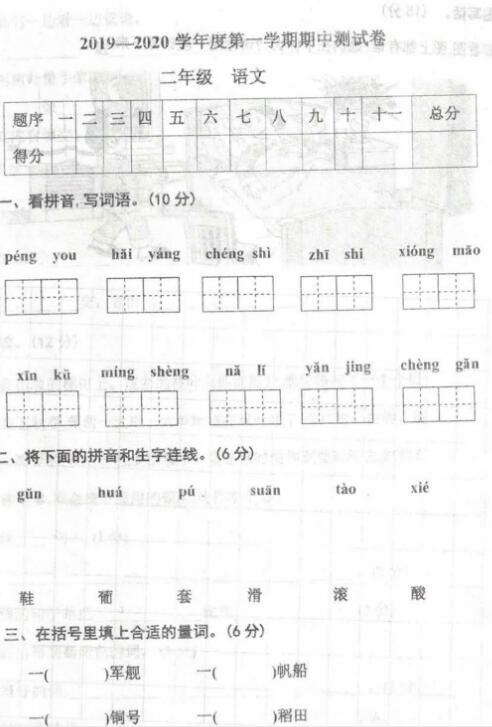 2019—2020 学年度第一学期期中测试卷
二年级 语文
题序 一 二 三 四 五 六 七 八 九 十 十一 总分
得分
一、看拼音,写词语。(10 分)
péng you hǎi yáng chéng shì zhī shi xióng māo
xīn kǔ míng shèng nǎ lǐ yǎn jing chèng gǎn
二、将下面的拼音和生字连线。(6 分)
gǔn huá pú suān tào xié
鞋 葡 套 滑 滚 酸
三、在括号里填上合适的量词。(6 分)
一( )军舰 一( )帆船
一( )铜号 一( )稻田